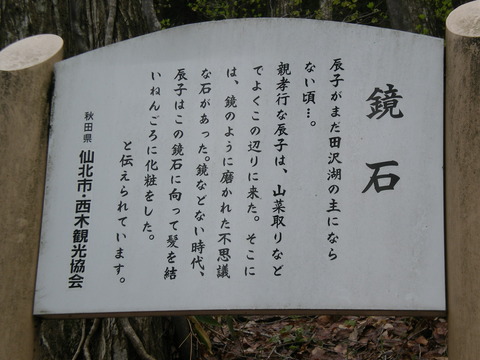 鏡石
辰子がまだ田沢湖の主になら
ない頃…。
親孝行な辰子は、山菜取りなど
でよくこの辺りに来た。そこに
は、鏡のように磨かれた不思議
な石があった。鏡などない時代、
辰子はこの鏡石に向って髪を結
いねんごろに化粧をした。
と伝えられています。
秋田県 仙北市・西木観光協会